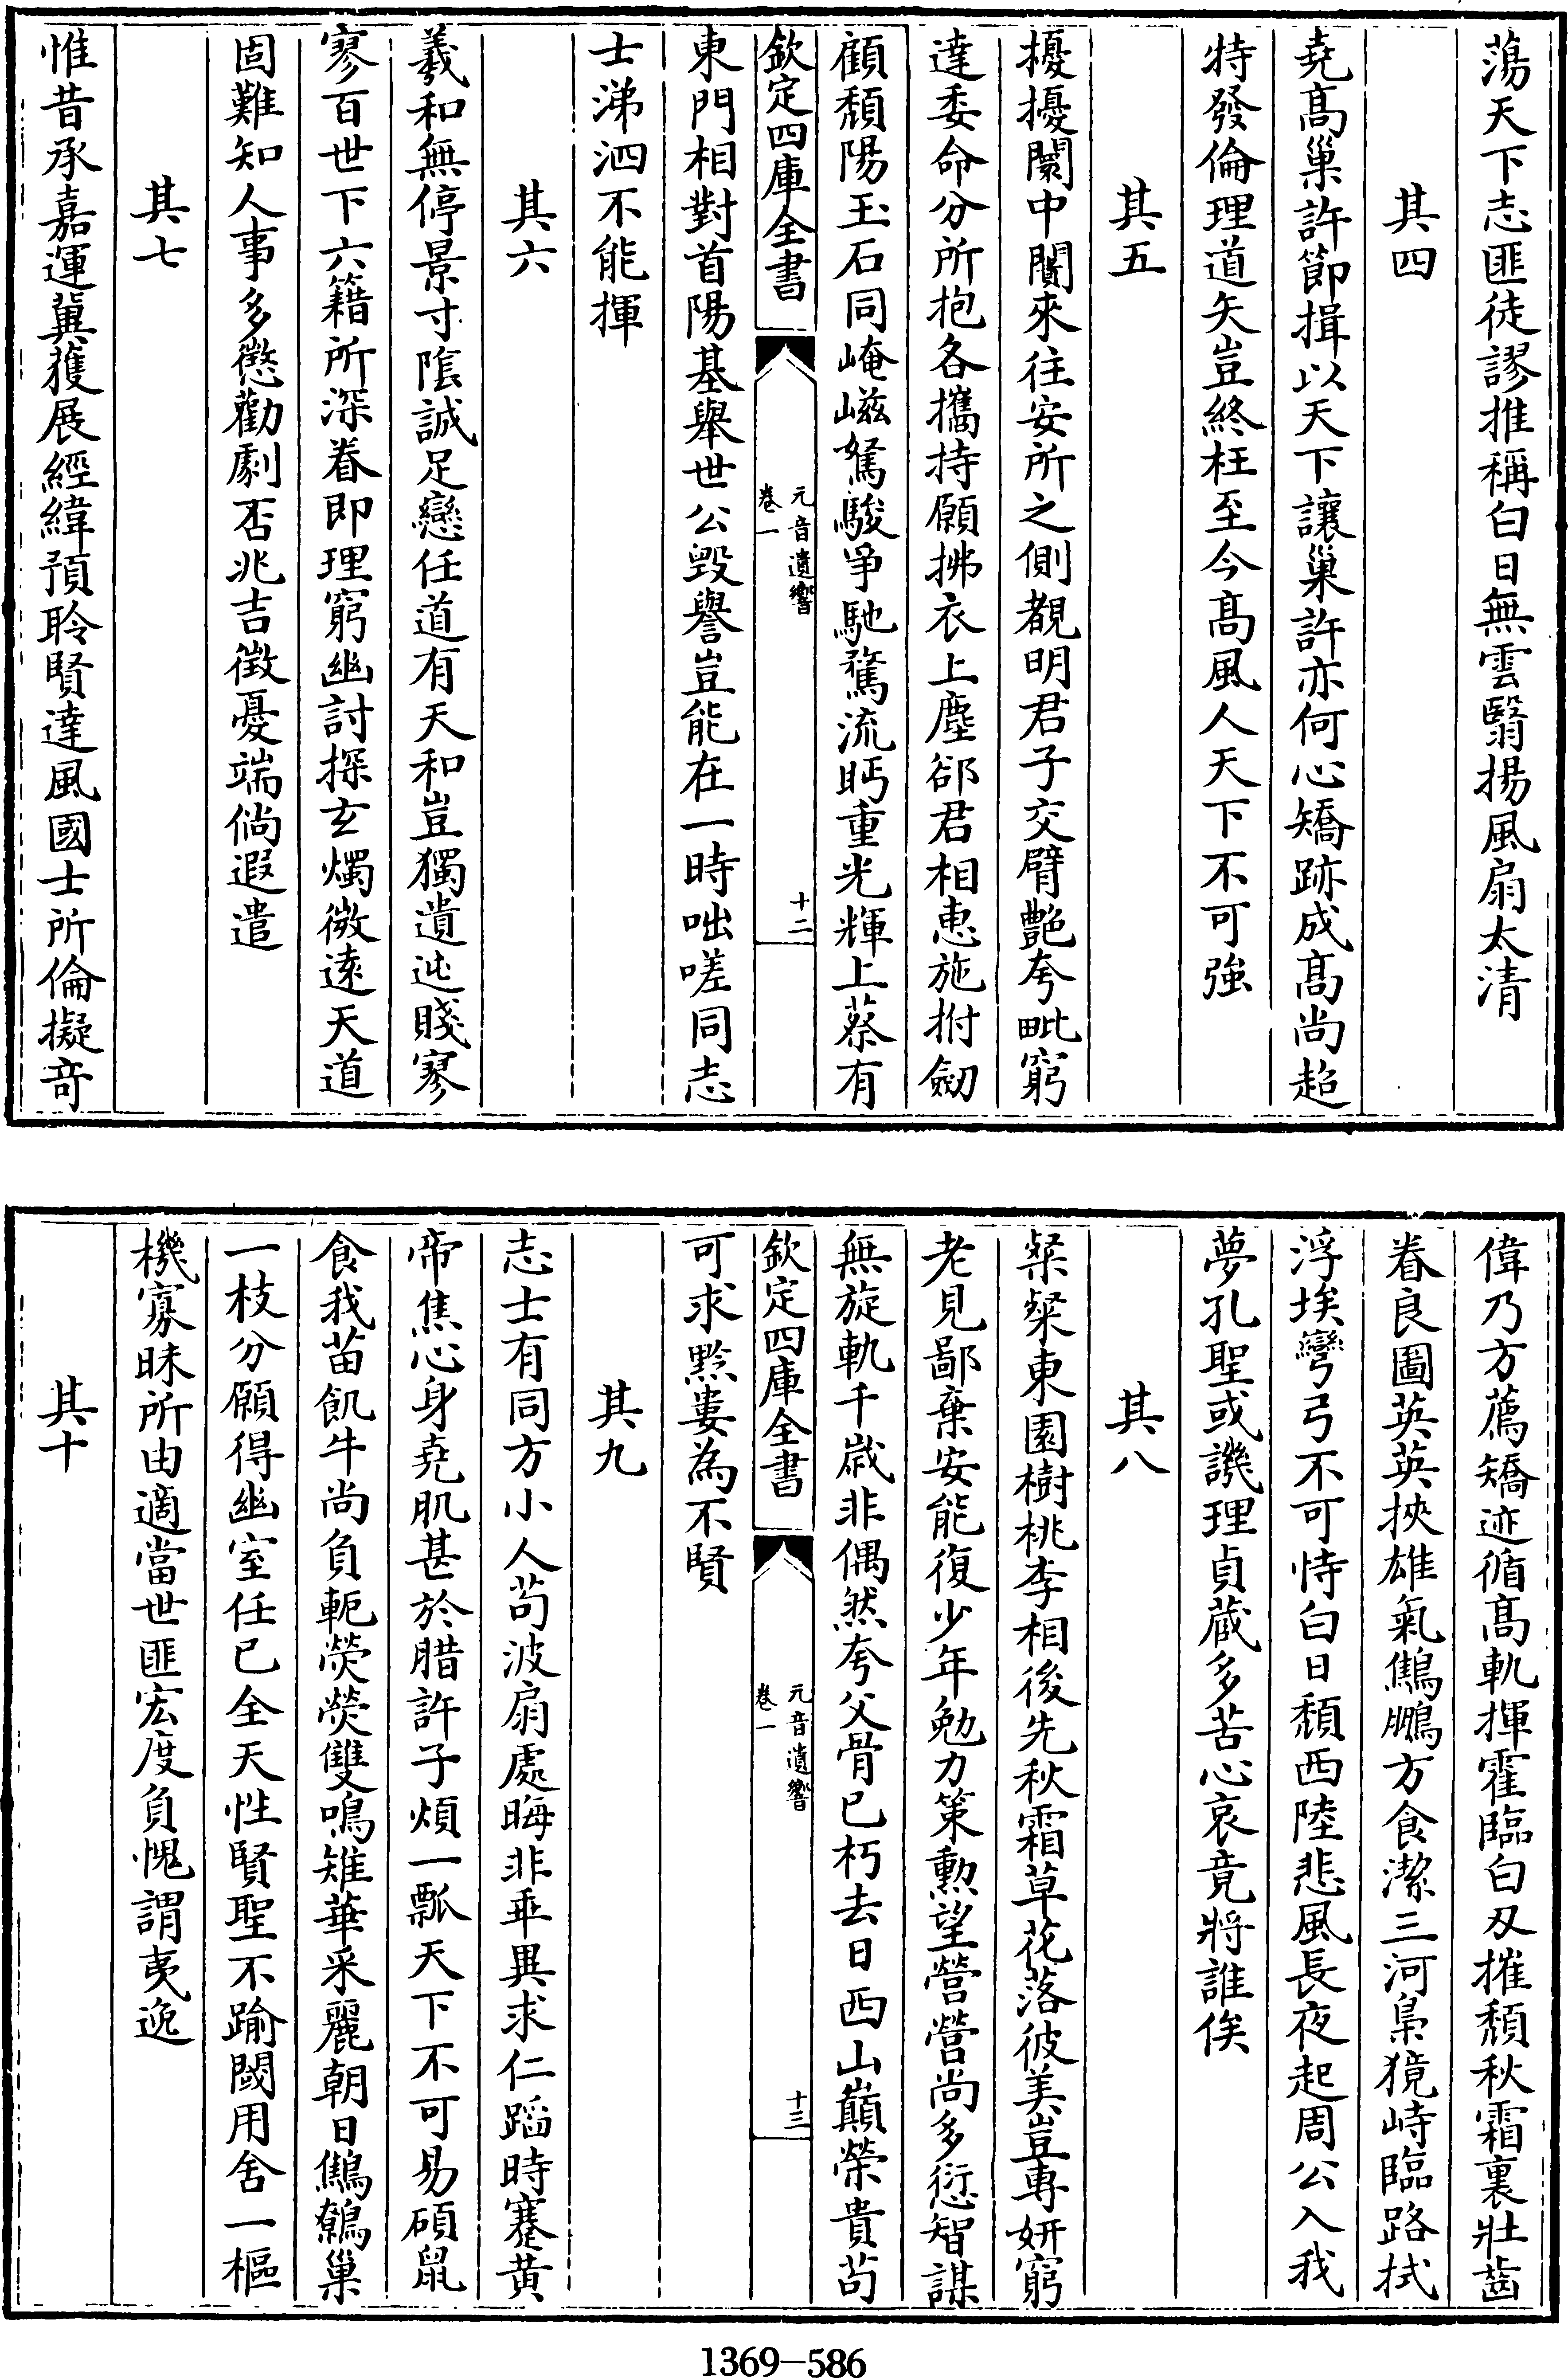 蕩天下志匪徒謬推稱白日無雲翳揚風扇太清
其四
堯髙巢許節揖以天下讓巢許亦何心矯跡成髙尚超
特發倫理道矢豈終枉至今髙風人天下不可強
其五
擾擾闤中闠來往安所之側覩明君子交臂艶夸毗窮
達委命分所抱各攜持願拂衣上塵郤君相惠施拊劒
顧頽陽玉石同崦嵫駑駿爭馳騖流眄重光輝上蔡有
欽定四庫全書
元音遺響
卷一
十二
東門相對首陽基舉世公毀譽豈能在一時咄嗟同志
士涕泗不能揮
其六
羲和無停景寸隂誠足戀任道有天和豈獨遺迍賤寥
寥百世下六籍所深眷即理窮幽討探玄燭微逺天道
固難知人事多懲勸劇否兆吉徵憂端倘遐遣
其七
惟昔承嘉運冀獲展經緯預聆賢達風國士所倫擬竒
偉乃方薦矯迹循髙軌揮霍臨白刄摧頽秋霜裏壯齒
眷良圖英英挾雄氣鷦鵬方食潔三河梟獍峙臨路拭
浮埃彎弓不可恃白日頽西陸悲風長夜起周公入我
夢孔聖或譏理貞蔵多苦心哀竟將誰俟
其八
粲粲東園樹桃李相後先秋霜草花落彼美豈專妍窮
老見鄙棄安能復少年勉力策勲望營營尚多愆智謀
無旋軌千嵗非偶然夸父骨已朽去日西山巔榮貴茍
欽定四庫全書
元音遺響
卷一
十三
可求黔婁為不賢
其九
志士有同方小人茍波扇處晦非乖異求仁蹈時蹇黄
帝焦心身堯肌甚於腊許子煩一瓢天下不可易碩鼠
食我苗飢牛尚負軛熒熒雙鳴雉華采麗朝日鷦鷯巢
一枝分願得幽室任已全天性賢聖不踰閾用舍一樞
機寡昧所由適當世匪宏度負愧謂夷逸
其十
1369-586